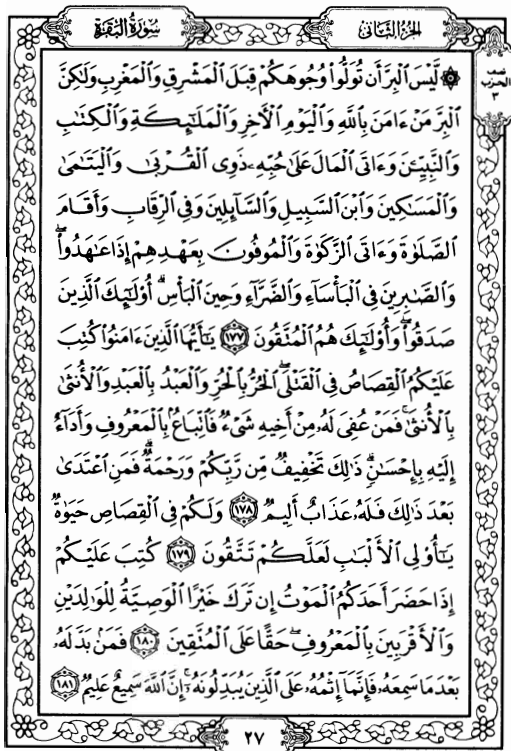 الجزء الثاني
سورة البقرة
نصف
الحزب
٣
۞ لَّيْسَ الْبِرَّ أَن تُوَلُّوا وُجُوهَكُمْ قِبَلَ الْمَشْرِقِ وَالْمَغْرِبِ وَلَٰكِنَّ
الْبِرَّ مَنْ ءَامَنَ بِاللَّهِ وَالْيَوْمِ الْآخِرِ وَالْمَلَٰٓئِكَةِ وَالْكِتَٰبِ
وَالنَّبِيِّۦنَ وَءَاتَى الْمَالَ عَلَىٰ حُبِّهِۦ ذَوِى الْقُرْبَىٰ وَالْيَتَٰمَىٰ
وَالْمَسَٰكِينَ وَابْنَ السَّبِيلِ وَالسَّآئِلِينَ وَفِى الرِّقَابِ وَأَقَامَ
الصَّلَوٰةَ وَءَاتَى الزَّكَوٰةَ وَالْمُوفُونَ بِعَهْدِهِمْ إِذَا عَٰهَدُوا ۖ
وَالصَّٰبِرِينَ فِى الْبَأْسَآءِ وَالضَّرَّآءِ وَحِينَ الْبَأْسِ ۗ أُولَٰٓئِكَ الَّذِينَ
صَدَقُوا ۖ وَأُولَٰٓئِكَ هُمُ الْمُتَّقُونَ ١٧٧ يَٰٓأَيُّهَا الَّذِينَ ءَامَنُوا كُتِبَ
عَلَيْكُمُ الْقِصَاصُ فِى الْقَتْلَى ۖ الْحُرُّ بِالْحُرِّ وَالْعَبْدُ بِالْعَبْدِ وَالْأُنثَىٰ
بِالْأُنثَىٰ ۚ فَمَنْ عُفِىَ لَهُۥ مِنْ أَخِيهِ شَىْءٌ فَاتِّبَاعٌۢ بِالْمَعْرُوفِ وَأَدَآءٌ
إِلَيْهِ بِإِحْسَٰنٍ ۗ ذَٰلِكَ تَخْفِيفٌ مِّن رَّبِّكُمْ وَرَحْمَةٌ ۗ فَمَنِ اعْتَدَىٰ
بَعْدَ ذَٰلِكَ فَلَهُۥ عَذَابٌ أَلِيمٌ ١٧٨ وَلَكُمْ فِى الْقِصَاصِ حَيَوٰةٌ
يَٰٓأُولِى الْأَلْبَٰبِ لَعَلَّكُمْ تَتَّقُونَ ١٧٩ كُتِبَ عَلَيْكُمْ
إِذَا حَضَرَ أَحَدَكُمُ الْمَوْتُ إِن تَرَكَ خَيْرًا الْوَصِيَّةُ لِلْوَٰلِدَيْنِ
وَالْأَقْرَبِينَ بِالْمَعْرُوفِ ۖ حَقًّا عَلَى الْمُتَّقِينَ ١٨٠ فَمَنۢ بَدَّلَهُۥ
بَعْدَ مَا سَمِعَهُۥ فَإِنَّمَآ إِثْمُهُۥ عَلَى الَّذِينَ يُبَدِّلُونَهُۥٓ ۚ إِنَّ اللَّهَ سَمِيعٌ عَلِيمٌ ١٨١
٢٧